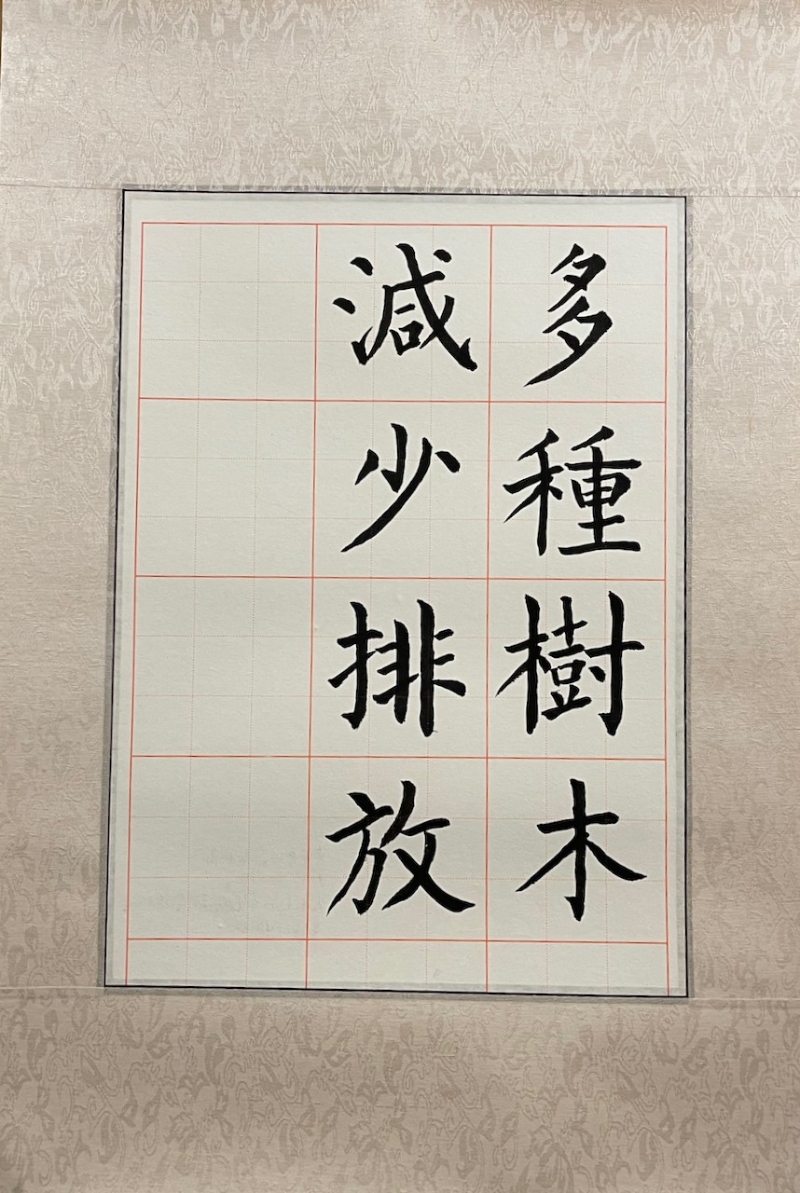 多種樹木
減少排放